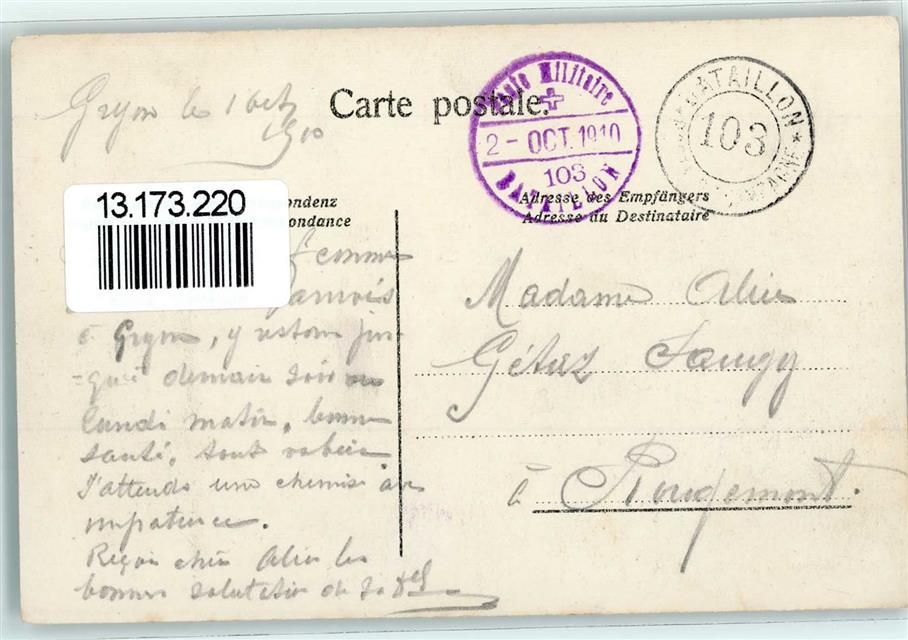 Gryon le 1 oct
1910
Carte postale.
Poste Militaire
2 - OCT. 1910
103
BATAILLON
BATAILLON
103
13.173.220
pondenz
pondance
Adresse des Empfängers
Adresse du Destinataire
femme
à Gryon, y restons jus-
=qu'à demain soir ou
lundi matin, bonne
santé, tout va bien
J'attends une chemise avec
impatience.
Reçois chère Alice les
bonnes salutations de
Madame Alice
Gétaz Saugy
à Rougemont.